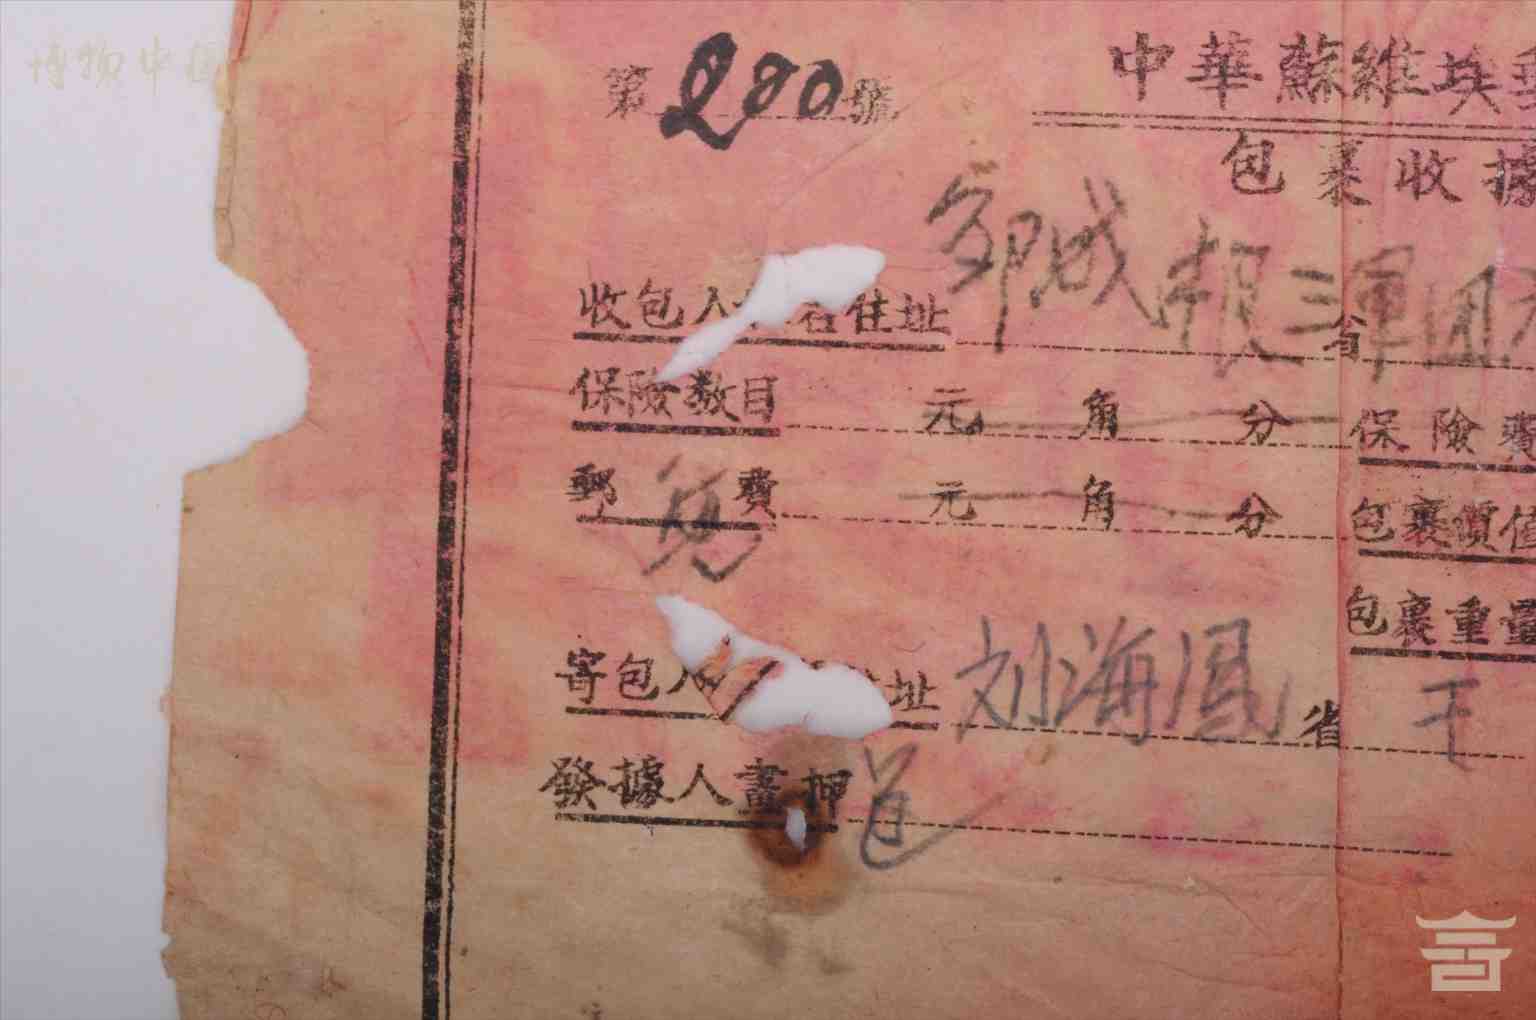 博物中国
第200號
中華蘇維埃
包裹收據
收包人 名住址 鄒成根 省 三軍团
保險数目 元 角 分 保險費
郵費 免 元 角 分 包裹價值
包裹重量
寄包人 址 刘海鳳 省
發據人畫押